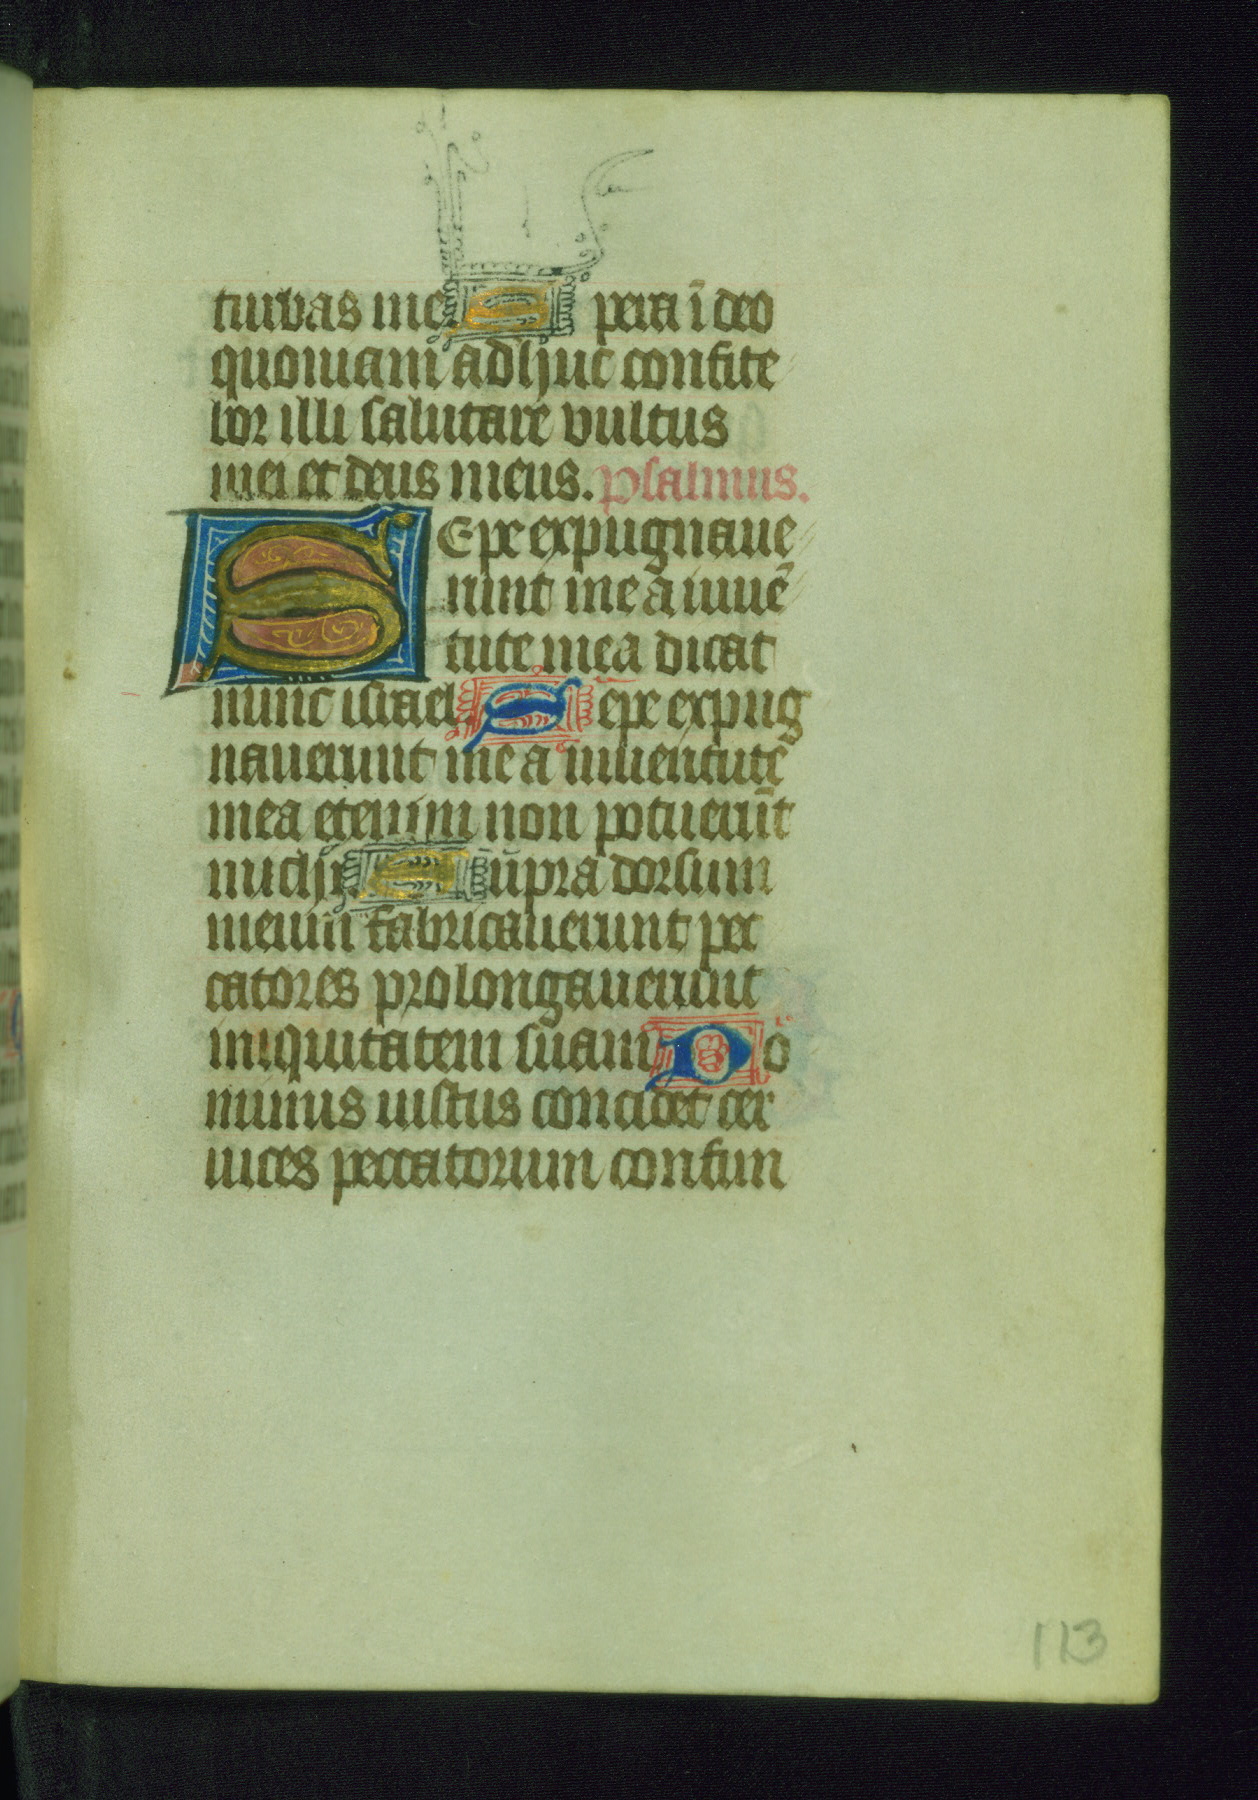 turbas me Spera ī deo
quoniam adhuc confite
bor illi salutare vultus
mei et deus meus. Psalmus.
SEpe expugnaue
runt me a iuuē
tute mea dicat
nunc israel Sepe expug
nauerunt me a iuuentute
mea etenim non potuerūt
michi Supra dorsum
meum fabricauerunt pec
catores prolongauerunt
iniquitatem suam Do
minus iustus concidet cer
uices peccatorum confun
113